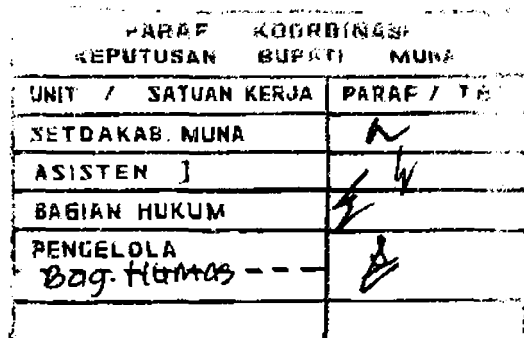 PARAF KOORDINASI
KEPUTUSAN BUPATI MUNA
UNIT / SATUAN KERJA PARAF /
SETDAKAB. MUNA
ASISTEN ]
BAGIAN HUKUM
PENGELOLA
Bag. HUMAS - - -